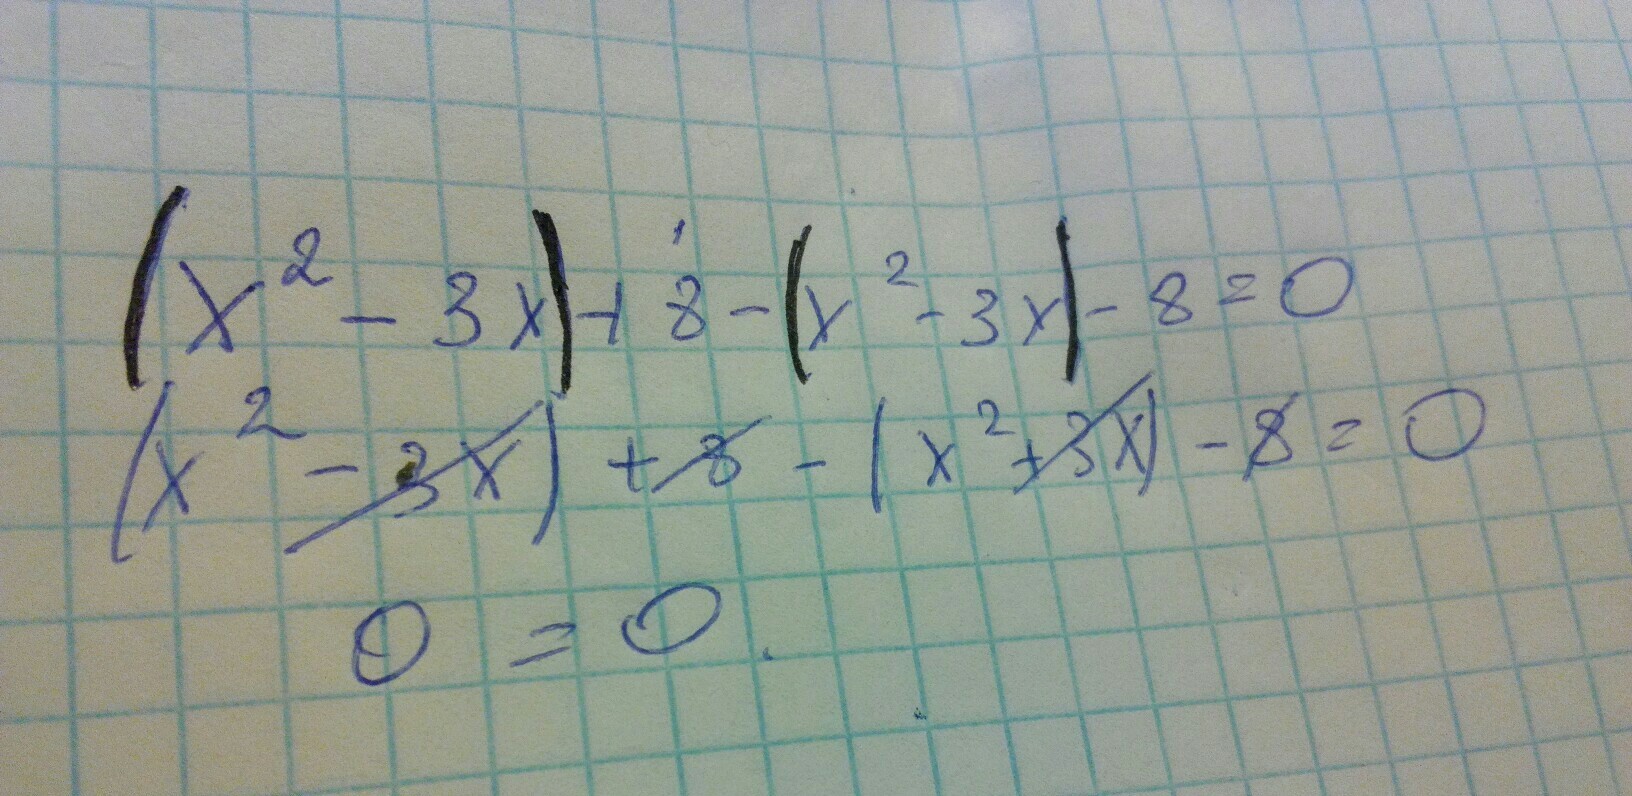 (x² - 3x) + 8 - (x² - 3x) - 8 = 0
(x² - 3x) + 8 - (x² + 3x) - 8 = 0
0 = 0.